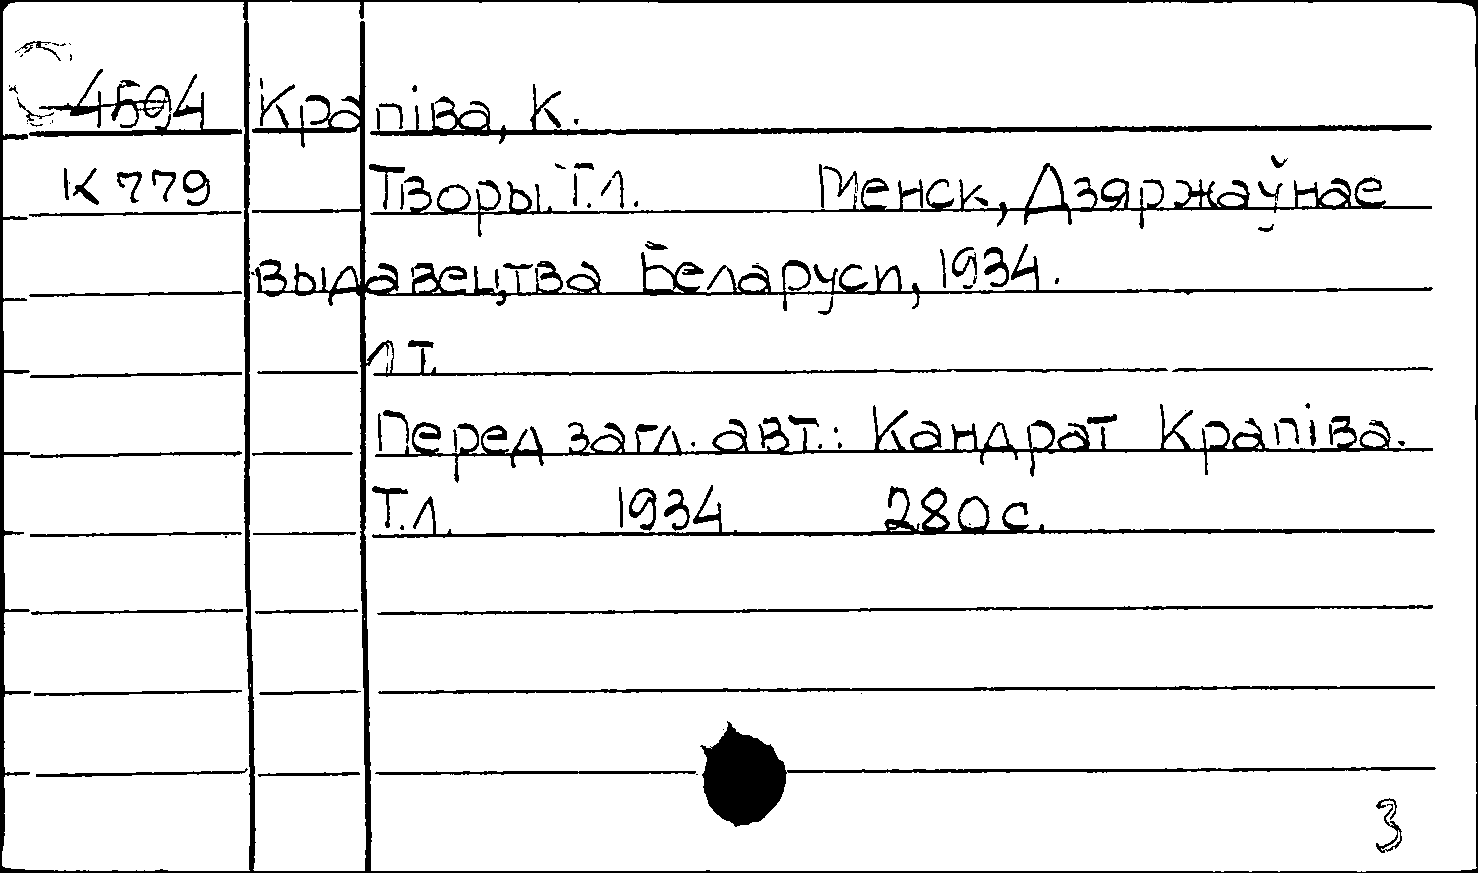 4594 Крапіва, К.
К 779 Творы. Т.1. Менск, Дзяржаўнае
выдавецтва Беларуси, 1934.
1 т.
Перед загл. авт.: Кандрат Крапіва.
Т.1. 1934 280 с.
3